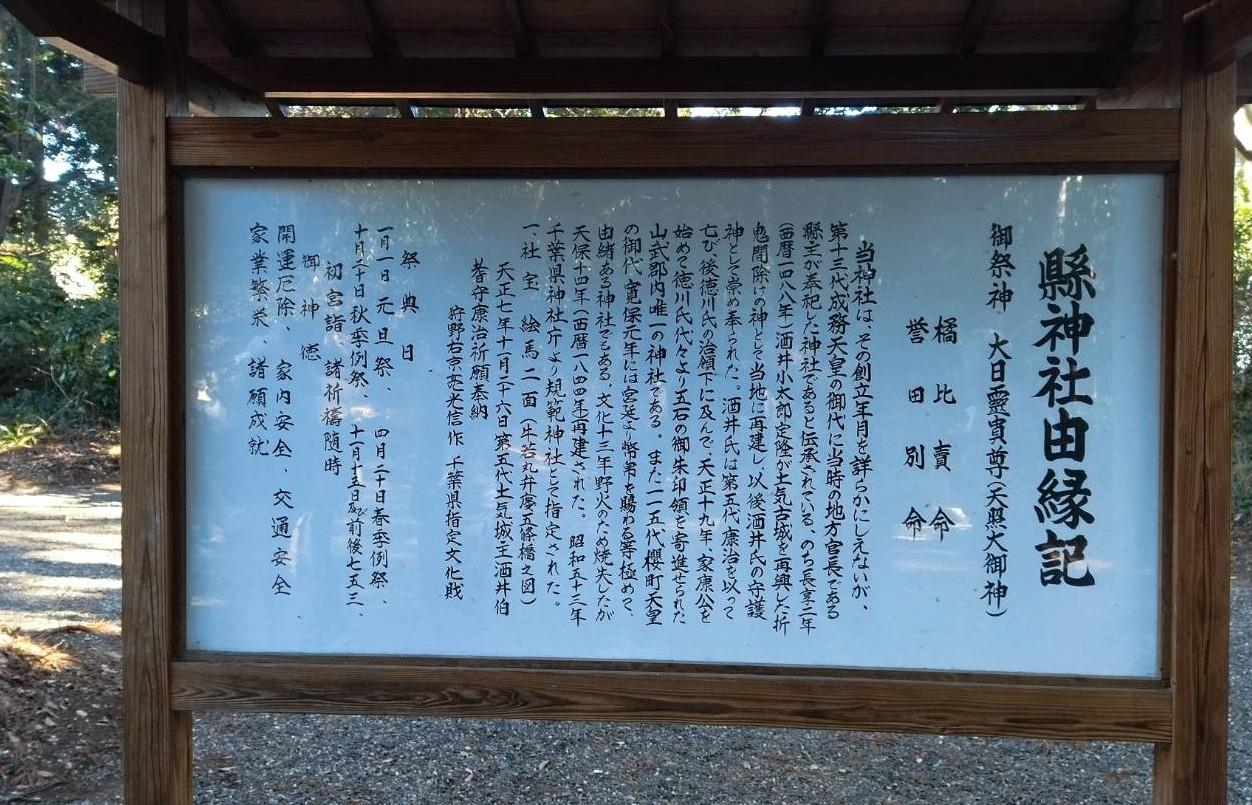 縣神社由緣記
御祭神　大日霊貴尊（天照大御神）
橘比賣命
誉田別命
当神社は、その創立年月を詳らかにしえないが、
第十三代成務天皇の御代に当時の地方官長である
縣主が奉祀した神社であると伝承されている。のち長享二年
（西暦一四八八年）酒井小太郎定隆が土気古城を再興した折
鬼門除けの神として当地に再建し以後酒井氏の守護
神として崇め奉られた。酒井氏は第五代康治を以って
亡び、後徳川氏の治領下に及んで、天正十九年、家康公を
始めて徳川氏代々より五石の御朱印領を寄進せられた
山武郡内唯一の神社である。また一一五代櫻町天皇
の御代寛保元年には宮廷より幣帛を賜わる等極めて
由緒ある神社である、文化十三年野火のため焼失したが
天保十四年（西暦一八四四年）再建された。昭和五十三年
千葉県神社庁より規範神社として指定された。
一、社宝　絵馬二面（牛若丸弁慶五條橋之図）
天正七年十一月二十六日第五代土気城主酒井伯
耆守康治祈願奉納
狩野右京亮光信作　千葉県指定文化財
祭典日
一月一日元旦祭、　四月二十日春季例祭、
十月二十日秋季例祭、　十一月十五日及び前後七五三、
初宮詣、諸祈禱随時
御神徳
開運厄除、　家内安全、　交通安全
家業繁栄、諸願成就